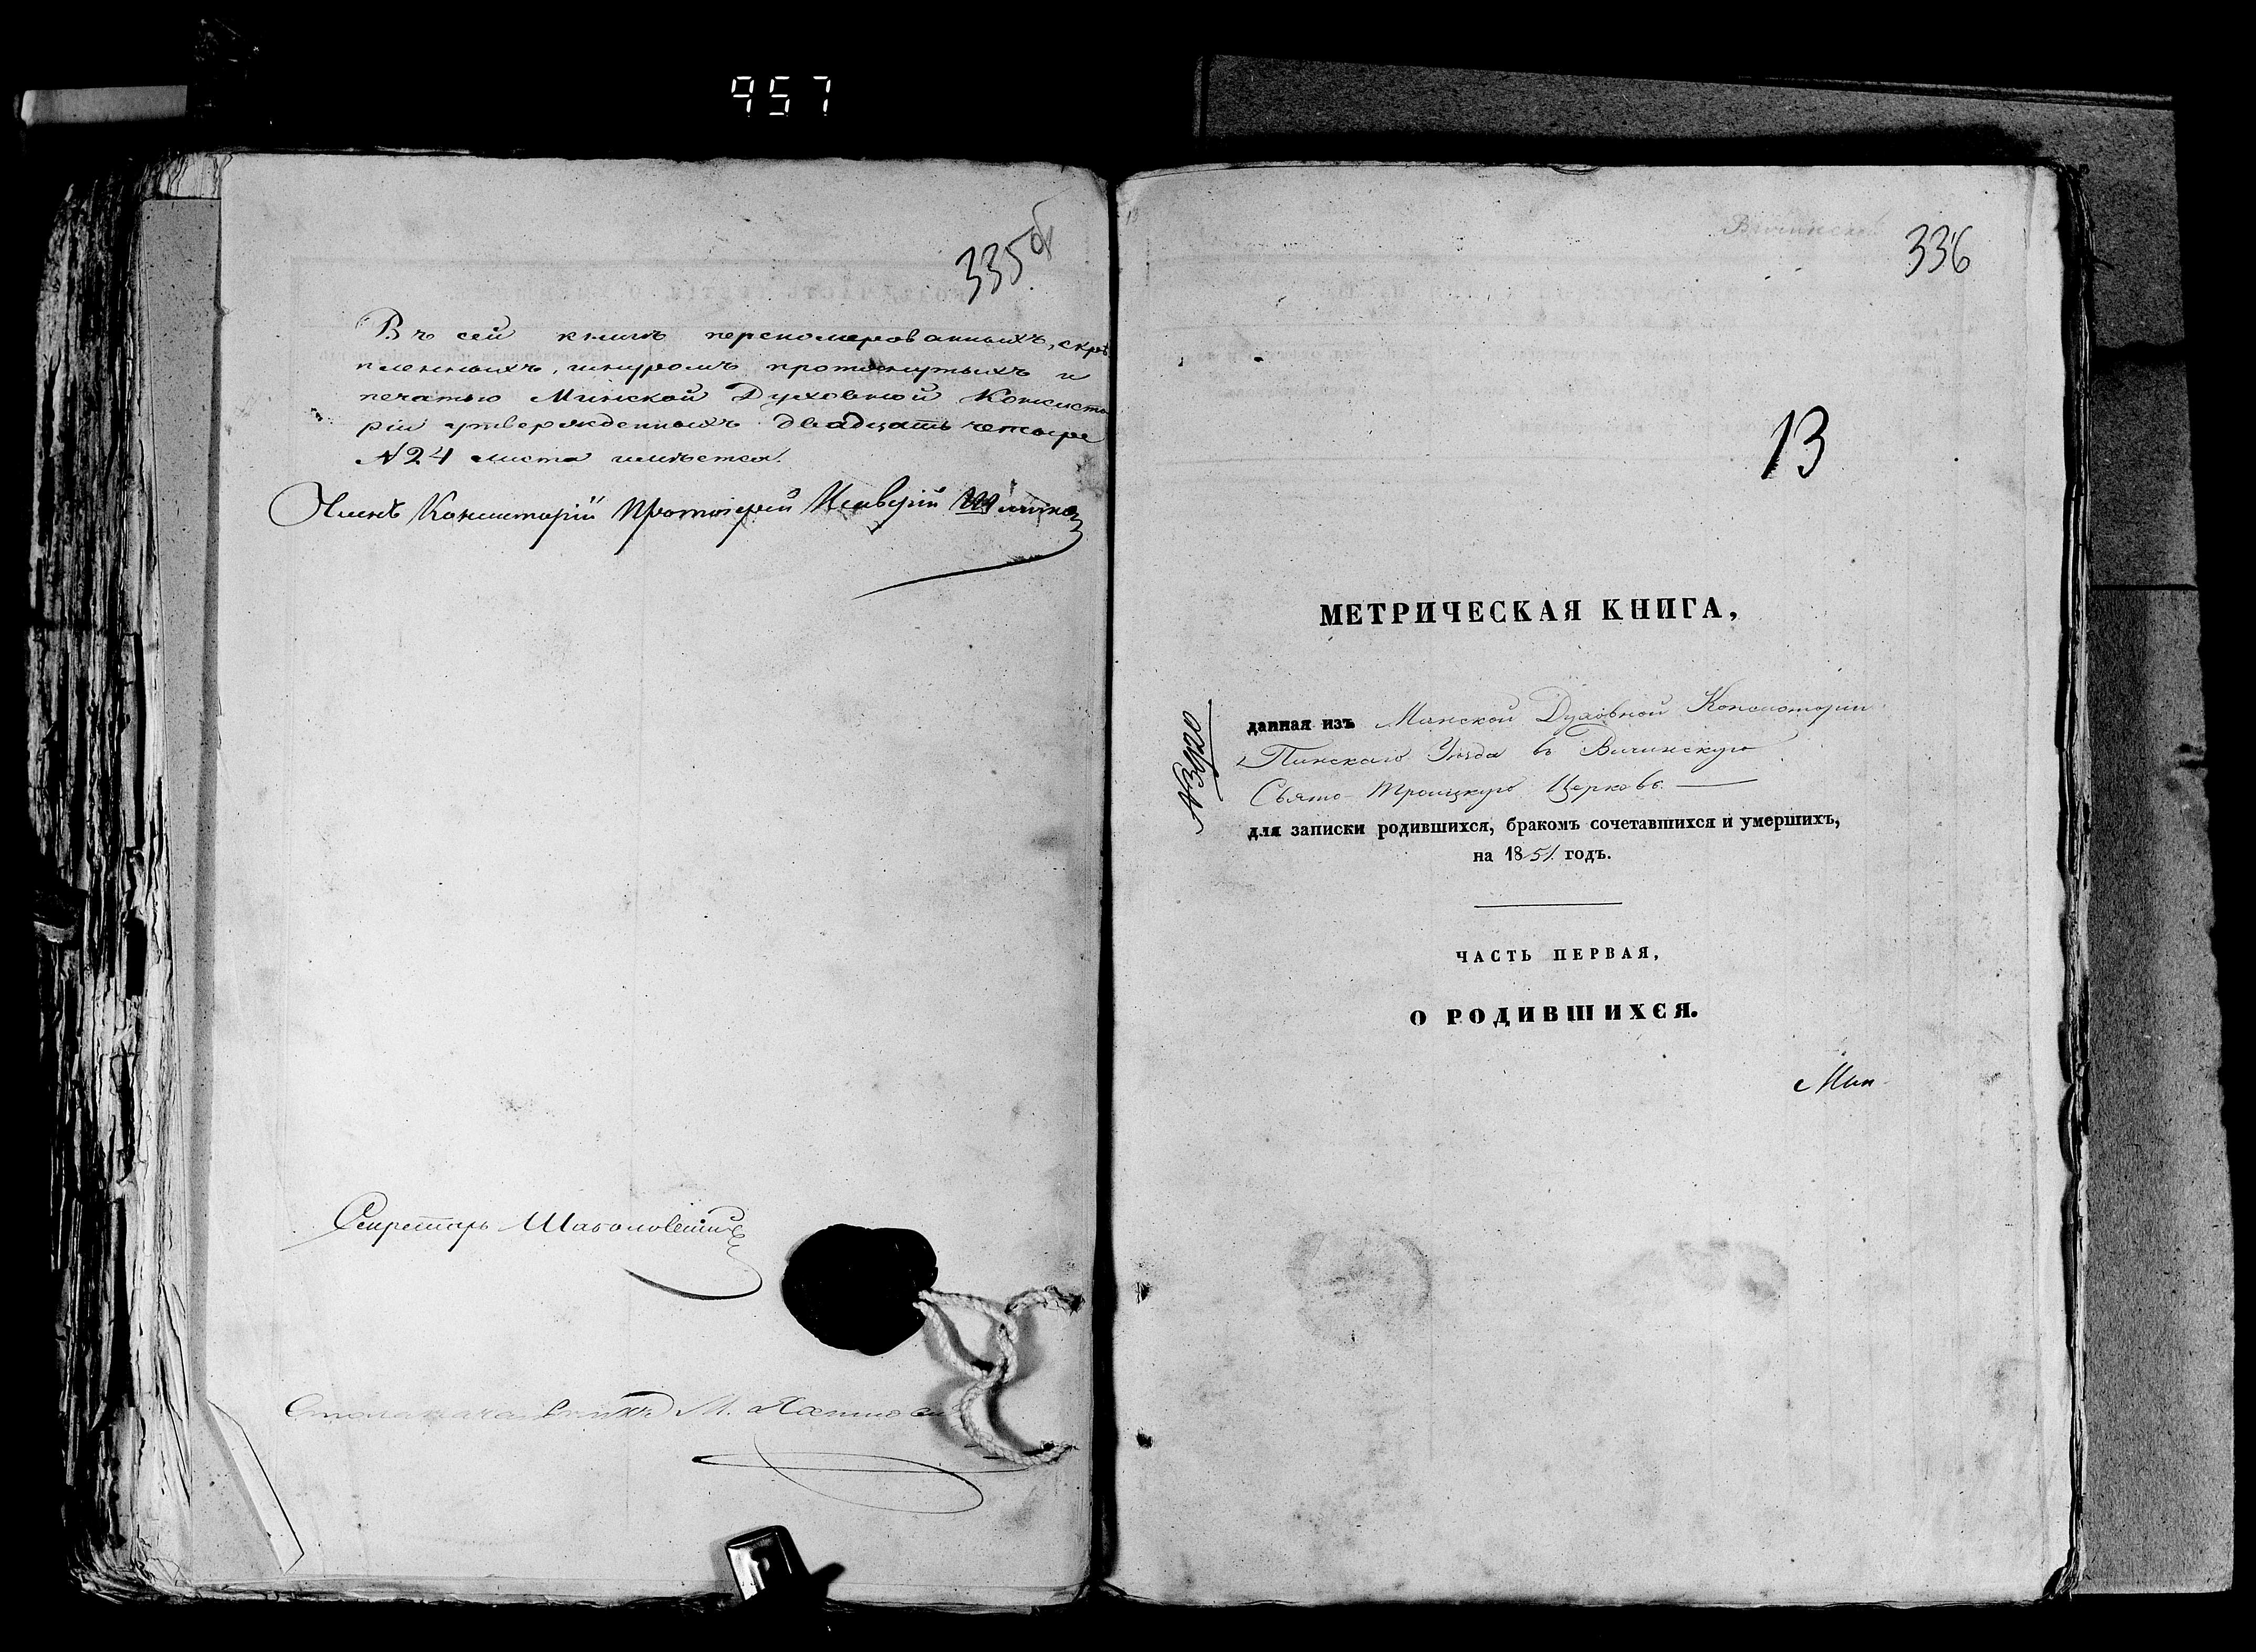 957
335 об
Въ сей книгѣ перенумерованныхъ, скрѣ
пленныхъ, шнуромъ протянутыхъ и
печатью Минской Духовной Консисто
ріи утвержденныхъ двадцать четыре
№ 24 листа имѣется.
Членъ Консисторіи Протоіерей
Секретарь
Столоначальникъ М.
336
13
МЕТРИЧЕСКАЯ КНИГА,
данная изъ Минской Духовной Консисторіи
Пинскаго Уѣзда въ Вичинскую
Свято-Троицкую Церковь
для записки родившихся, бракомъ сочетавшихся и умершихъ,
на 1851 годъ.
ЧАСТЬ ПЕРВАЯ,
О РОДИВШИХСЯ.
Мин